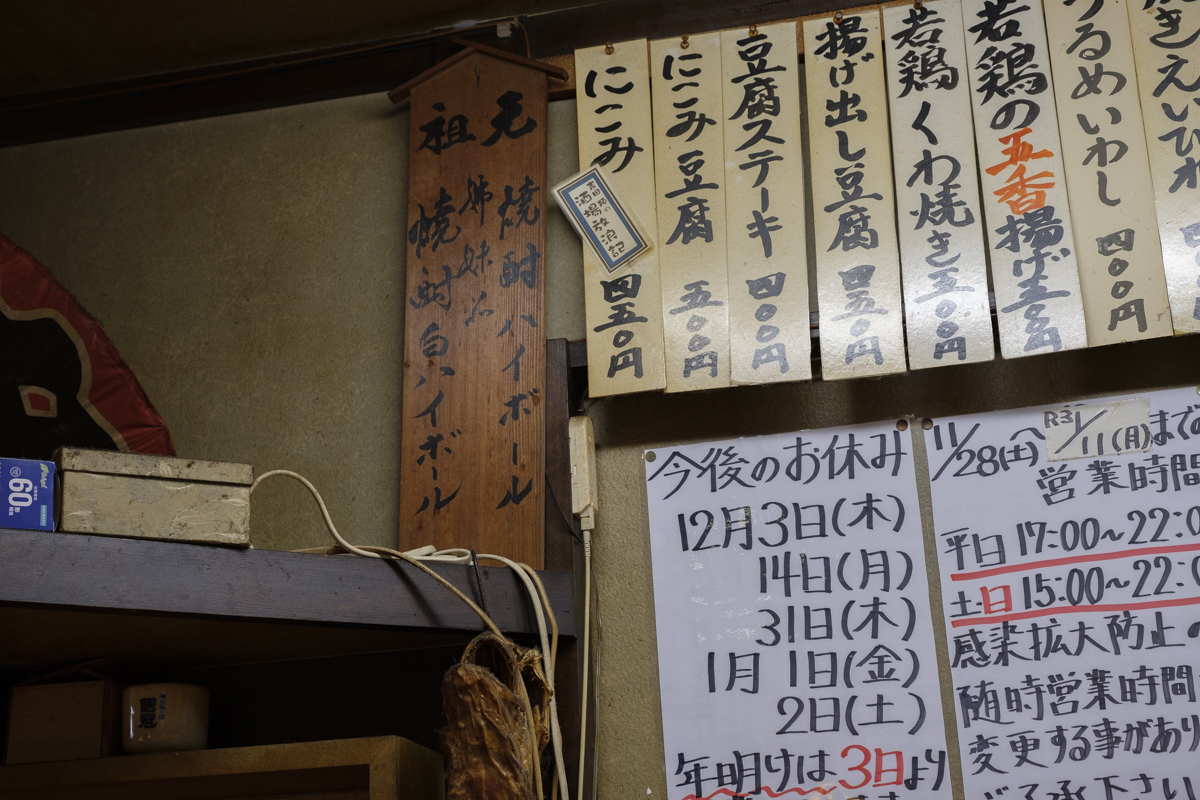 元祖
焼酎ハイボール
姉妹品
焼酎白ハイボール
にこみ 四五〇円
吉田類の
酒場放浪記
にこみ豆腐 五〇〇円
豆腐ステーキ 四〇〇円
揚げ出し豆腐 四五〇円
若鶏くわ焼き 五〇〇円
若鶏の五香揚げ 五〇〇円
うるめいわし 四〇〇円
焼きえいひれ
今後のお休み
12月3日(木)
14日(月)
31日(木)
1月1日(金)
2日(土)
年明けは3日より
11/28(土)へR3 1/11(月)まで
営業時間
平日 17:00~22:0
土日 15:00~22:
感染拡大防止の
随時営業時間
変更する事があり
ご了承下さい
60